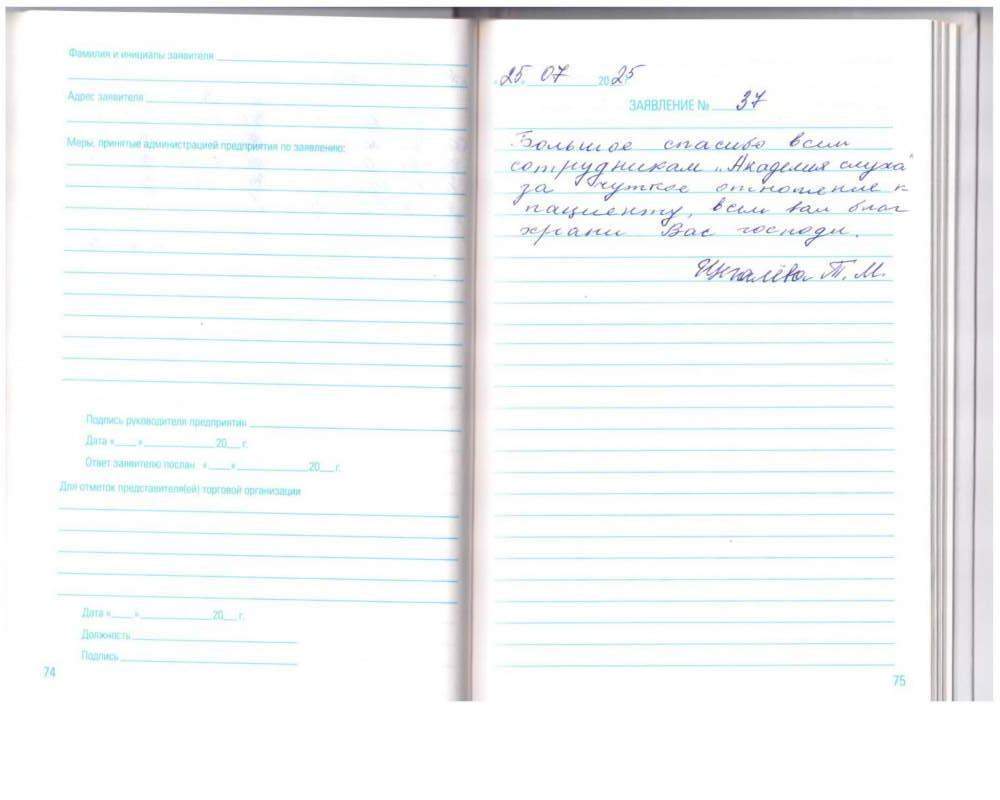 Фамилия и инициалы заявителя
Адрес заявителя
Меры, принятые администрацией предприятия по заявлению:
Подпись руководителя предприятия
Дата «___»___________20__ г.
Ответ заявителю послан «___»___________20__ г.
Для отметок представителя(ей) торговой организации
Дата «___»___________20__ г.
Должность
Подпись
74
«25» 07 2025
ЗАЯВЛЕНИЕ № 37
Большое спасибо всем
сотрудникам „Академия слуха"
за чуткое отношение к
пациенту, всем вам благ
храни Вас господи.
Т. М.
75